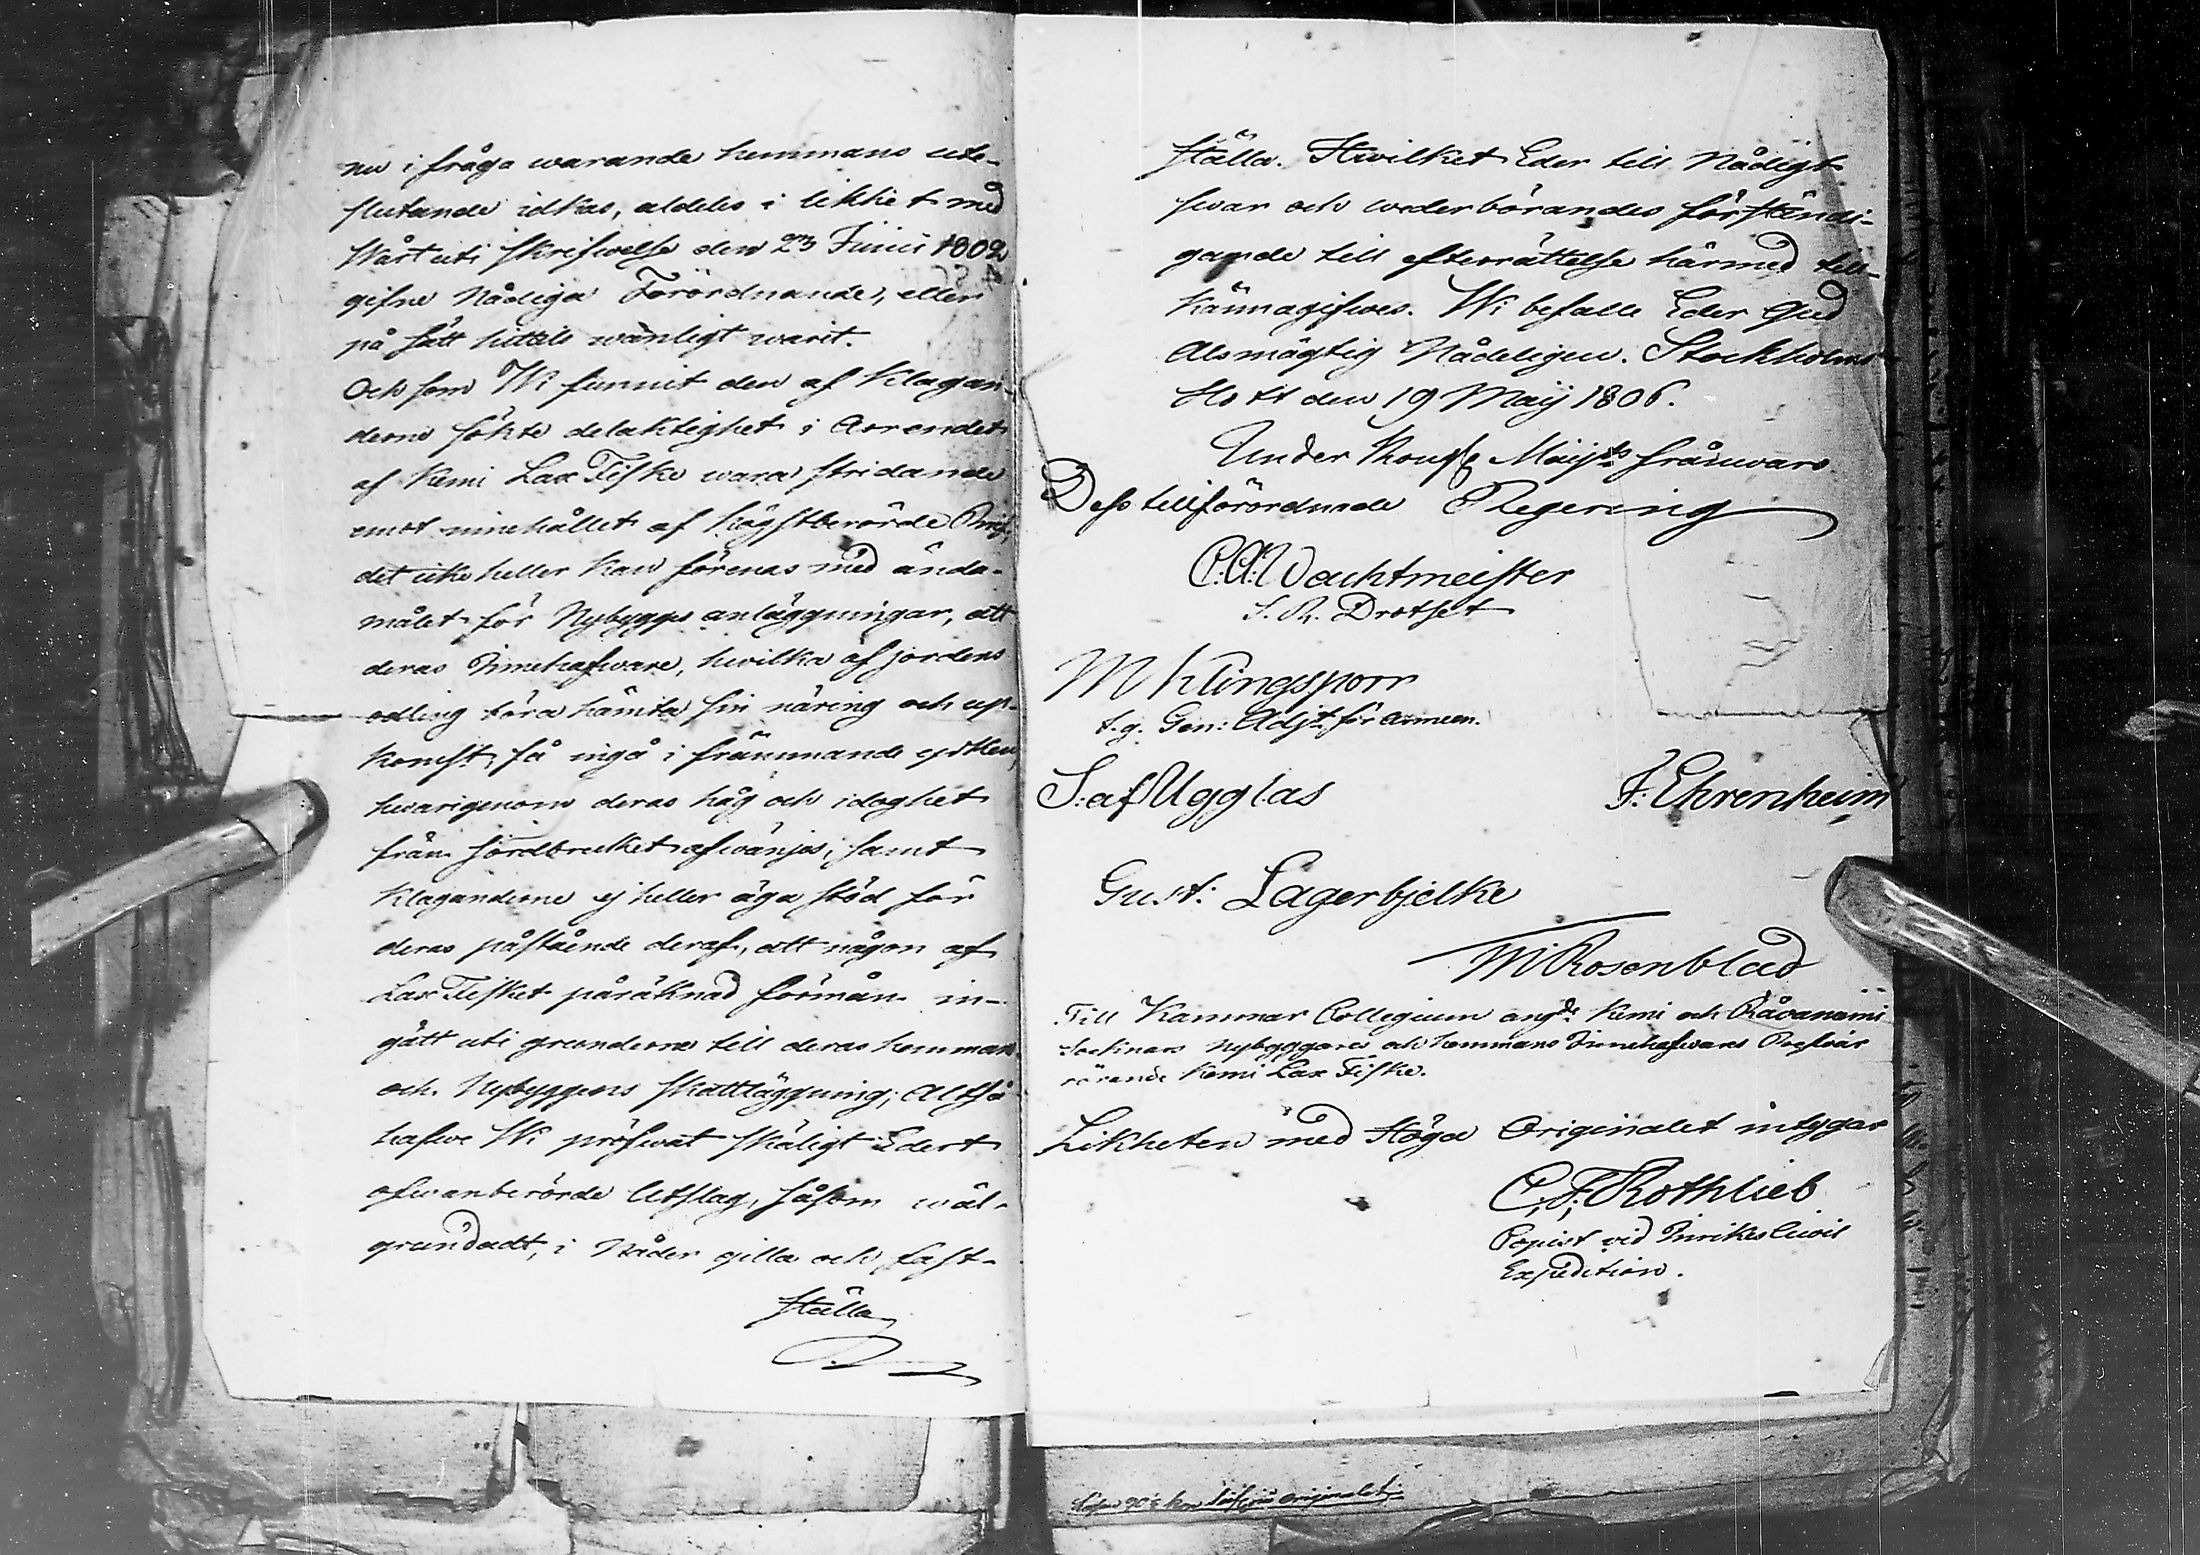 nu i fråga warande hemmans ute-
slutande idkas, aldeles i likhet med
Wårt uti skrifwelse den 23 Junii 1802
gifne Nådiga Förordnande, eller
på sätt hittils wanligt warit.
Och som Wi funnit den af Klagan-
derne sökte delaktighet i Arrendet
af Kemi Lax Fiske wara stridande
emot innehållet af högstberörde Bref,
det icke heller kan förenas med ända-
målet för Nybyggs anläggningar, att
deras Innehafware, hwilka af jordens
odling böra hämta sin näring och up-
komst, få ingå i främmande yrken,
hwarigenom deras håg och idoghet
från jordbruket afwänjes, samt
Klaganderne ej heller äga stöd för
deras påstående deraf, att någon af
Lax Fisket påräknad förmån in-
gått uti grunderne till deras hemmans
och Nybyggens Skattläggning; Altså
hafwe Wi pröfwat skäligt Edert
ofwanberörde Utslag, såsom wäl-
grundadt, i Nåder gilla och fast-
ställa
ställa. Hwilket Eder till Nådigt
swar och wederbörandes förständi-
gande till efterrättelse härmed till-
kännagifwes. Wi befalle Eder Gud
Alsmägtig Nådeligen. Stockholms
Slott den 19 Maij 1806.
Under Kongl Maij:ts frånwaro
Dess tillförordnade Regering
C. A. Wachtmeister
S. R. Drotset
M Klingsporr
t. g. Gen: Adjt för armeen.
S: af Ugglas F: Ehrenheim
Gust: Lagerbjelke
M Rosenblad
Till Kammar Collegium angde Kemi och Råvaniemi
Socknars Nybyggares och hemmans Innehafwares Beswär
rörande Kemi Lax Fiske.
Likheten med Höga Originalet intygar
C. F. Rothlieb
Copist vid Inrikes Civil
Expedition.
originalet